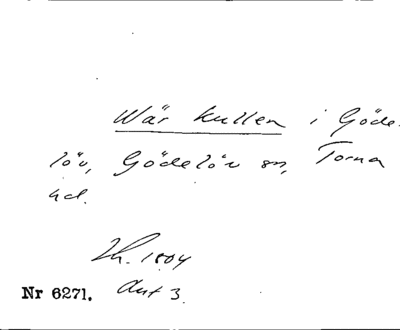 Wär kullen i Göde-
löv, Gödelöv sn, Torna
hd.
Lh. 1804
Nr 6271. Akt 3.